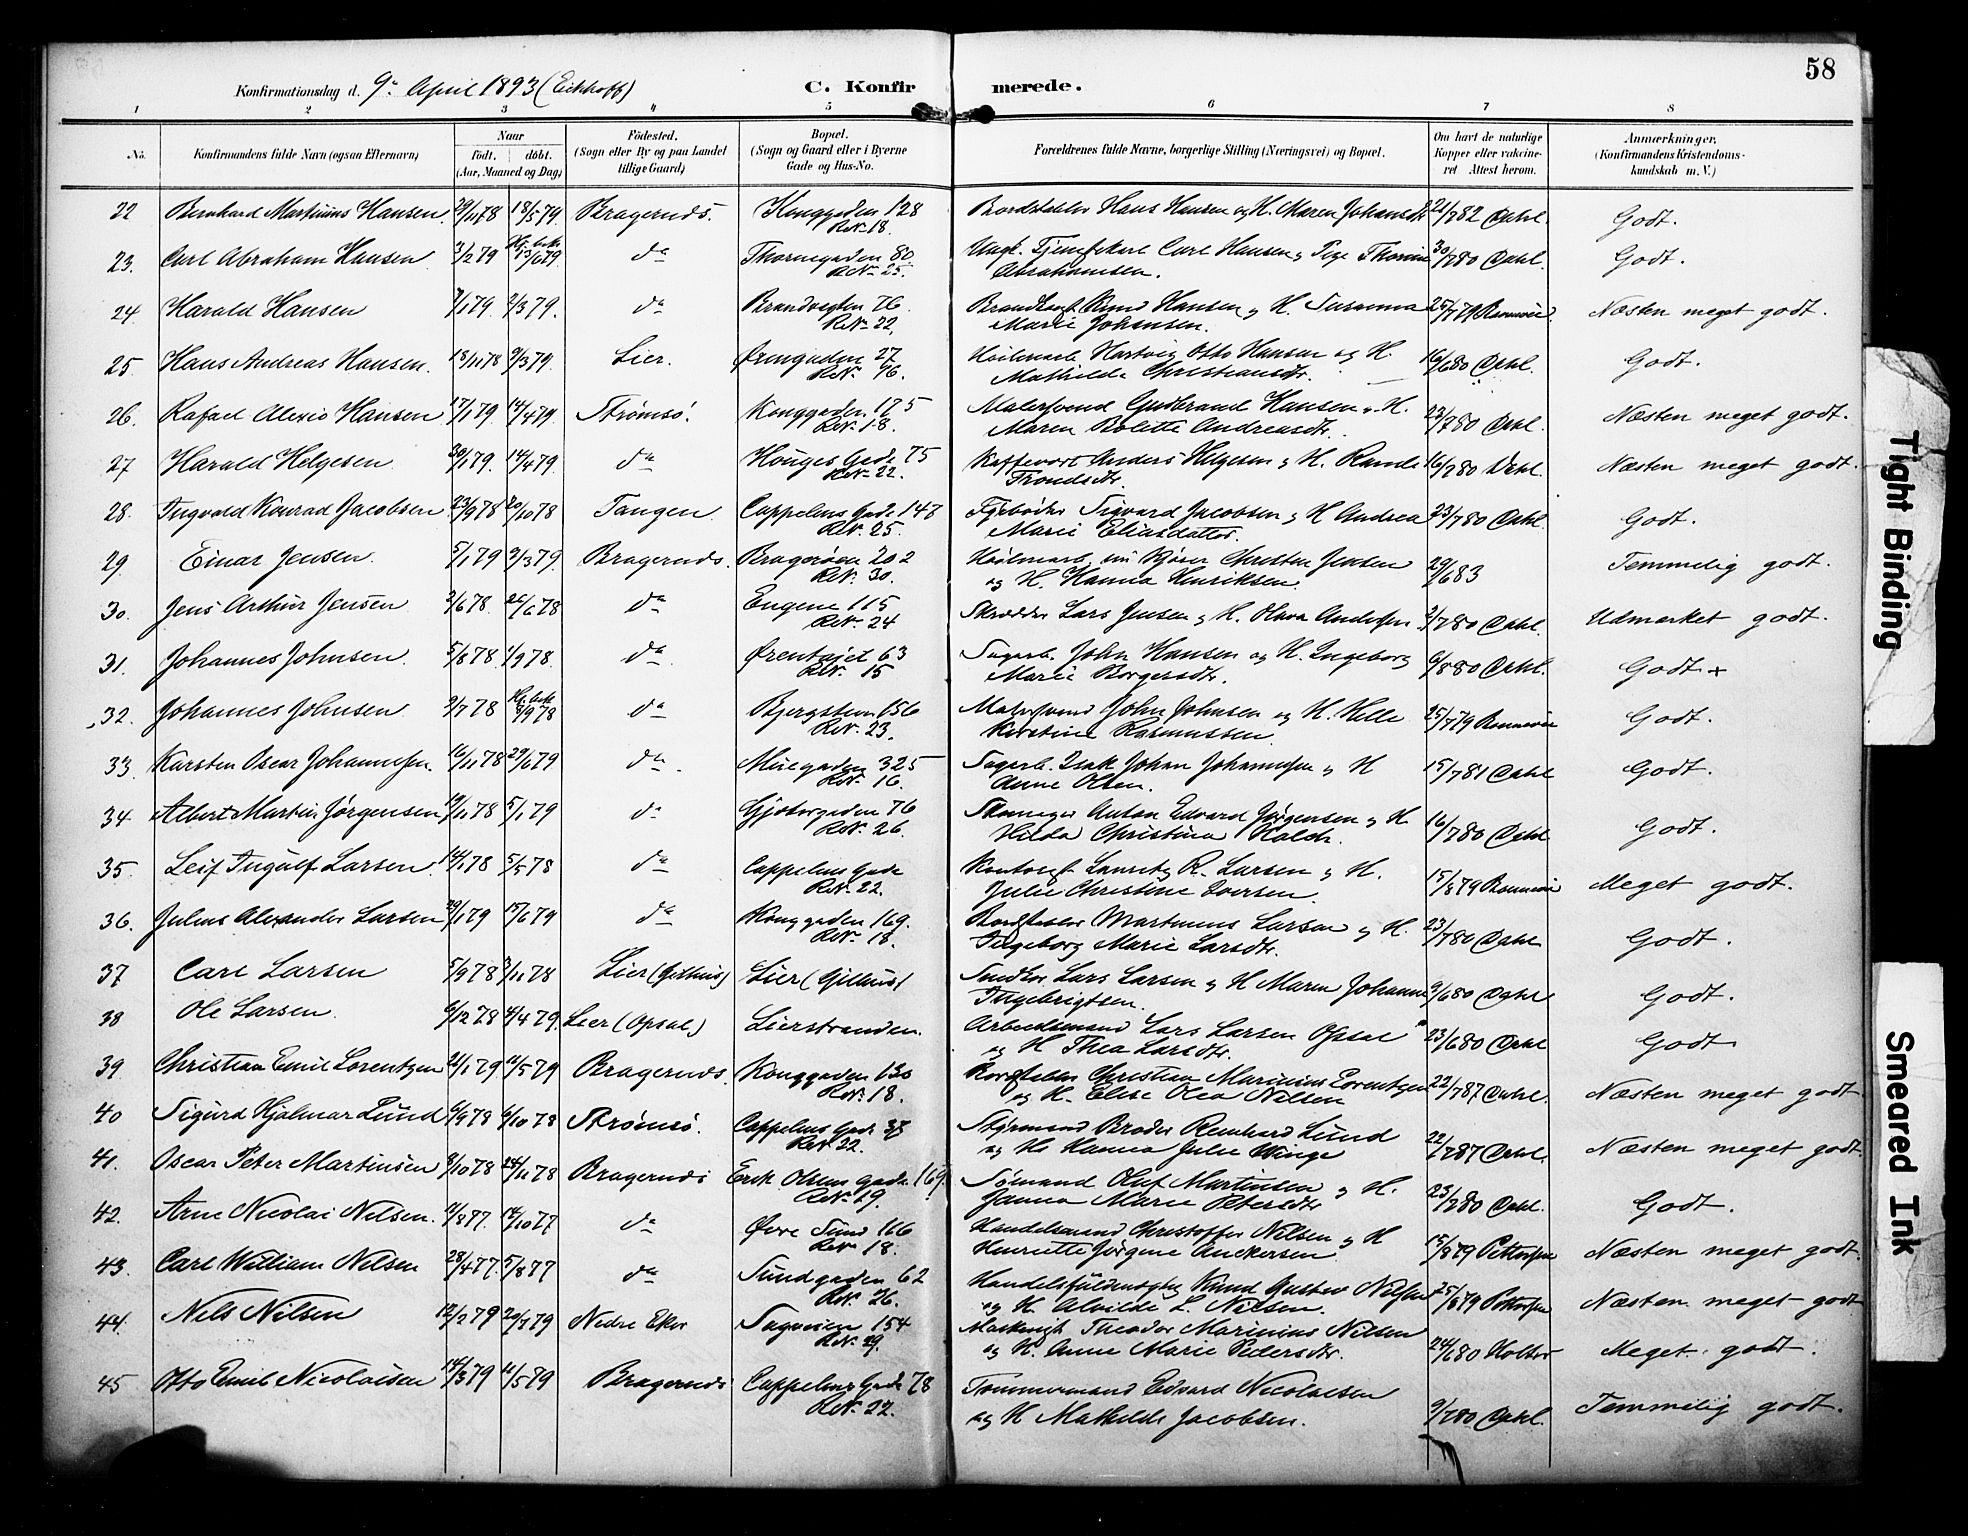 58
Konfirmationsdag d. 9de April 1893 (Eickhoff)
C. Konfirmerede.
1 2 3 4 5 6 7 8
No. Konfirmandens fulde Navn (ogsaa Efternavn) Naar født. døbt. (Aar, Maaned og Dag) Födested. (Sogn eller By og paa Landet tillige Gaard) Bopæl. (Sogn og Gaard eller i Byerne Gade og Hus-No. Forældrenes fulde Navne, borgerlige Stilling (Næringsvei) og Bopæl. Om havt de naturlige Kopper eller vakcineret Attest herom. Anmærkninger, (Konfirmandens Kristendomskundskab m. V.)
22 Bernhard Martinius Hansen 29/11 78 18/5 79 Bragernæs. Konggaden 128 Hans Hansen og H. Maren Johansdtr 21/7 82 Godt.
R.N. 18.
23. Carl Abraham Hansen 3/2 79 Hj. døbt 13/6 79 da Thornegaden 80 Carl Hansen og Pige 30/7 80 Godt.
R.N. 25. Abrahamsen.
24 Harald Hansen 7/1 79. 2/3 79. da Brandvagten 76 Knud Hansen og H. Susanna 25/7 79 Næsten meget godt.
R.N. 22. Marie Johansen.
25 Hans Andreas Hansen. 18/11 78 9/3 79. Lier. Ørengaden 27 Hartvig Otto Hansen og H. 16/6 80 Godt.
R.N. 76. Mathilde Christiansdtr.
26. Rafael Alexis Hansen 17/1 79. 14/4 79. Strømsø. Konggaden 175 Malersvend Gudbrand Hansen og H. 23/7 80 Næsten meget godt.
R.N. 18. Maren Bolette Andreasdtr.
27 Harald Helgesen 30/1 79. 14/4 79. da Houges Gade 75 Anders Helgesen og H. 16/7 80 Næsten meget godt.
R.N. 22. Trondsdtr.
28. Ingvald Konrad Jacobsen 23/9 78 20/10 78 Tangen Cappelens Gade 147 Sigvard Jacobsen og H Andrea 23/7 80 Godt.
R.N. 25. Marie Eliasdatter
29 Einar Jensen. 5/1 79 2/3 79. Bragernæs. Bragerøen 202 Christen Jensen 29/6 83 Temmelig godt.
R.N. 30. og H. Hanna Henriksen.
30. Jens Arthur Jensen 2/6 78. 26/6 78 da Engene 115 Skrædder Lars Jensen og H. Olava Andersen 2/7 80 Udmærket godt.
R.N. 24
31. Johannes Johnsen 5/8 78 1/9 78. da Ørentajet 63 Sagarb. John Hansen og H. Ingeborg 6/8 80 Godt +
R.N. 15 Marie Borgersdtr.
32. Johannes Johnsen 9/7 78 Hj. døbt 8/9 78 da Bjergstien 156 Malersvend John Johnsen og H. Helle 25/7 79 Godt.
R.N. 23. Kirstine Rasmussen
33. Karsten Oscar Johannesen. 16/11 78 29/6 79 da. 325 Sagarb. Isak Johan Johannesen og H 15/7 81 Godt.
R.N. 16. Anne Olsen.
34 Albert Martin Jørgensen 19/11 78 5/1 79 da Gjetergaden 76 Anton Edvard Jørgensen og H. 16/7 80 Godt.
R.N. 26. Hilda Christina
35. Leif Ingulf Larsen. 14/1 78 5/5 78 da Cappelens Gade Lauritz R. Larsen og H. 15/8 79 Meget godt.
R.N. 22. Julie Christine Iversen.
36. Julius Alexander Larsen 29/1 79 15/6 79 da Konggaden 169. Martinus Larsen og H. 23/7 80 Godt.
R.N. 18. Ingeborg Marie Larsdtr.
37 Carl Larsen 5/9 78 3/11 78 Lier (Gilhus) Lier (Gilhus) Lars Larsen og H Maren Johanne 9/6 80 Godt.
Ingebrigtsen.
38 Ole Larsen. 6/12 78 4/4 79. Lier (Opsal) Lierstranden. Arbeidsmand Lars Larsen Opsal 23/6 80 Godt
og H Thea Larsdtr.
39. Christian Emil Lorentzen 21/1 79 11/5 79 Bragernæs. Konggaden 130 Christian Marinius Lorentzen 22/7 87 Næsten meget godt
R.N. 18. og H. Elise Olea Nilsen
40 Sigurd Hjalmar Lund 6/9 78 6/10 78 Strømsø. Cappelens Gade 37 Styrmand Broder Reinhard Lund 22/7 87 Næsten meget godt.
R.N. 22. og H. Hanna Julie Winge
41. Oscar Peter Martinsen 8/10 78 24/11 78 Bragernæs Erik Olsens gade 169. Sømand Oluf Martinsen og H. 23/2 80 Godt.
R.N. 19. Janna Marie Petersdtr
42. Arne Nicolai Nilsen. 11/8 77. 14/10 77 da Øvre Sund 166 Handelsmand Christoffer Nilsen og H 15/8 79 Pettersen Næsten meget godt.
R.N. 18. Henriette Jørgine Anckersen
43. Carl William Nilsen 28/4 77. 5/8 77 da Sundgaden 62 Knud Gustav Nilsen 25/8 79 Pettersen Næsten meget godt
R.N. 26. og H. Alvilde L. Nilsen.
44. Nils Nilsen 12/2 79 20/7 79 Nedre Eker Sagveien 154 Theodor Marinius Nilsen 24/6 80 Holter Meget godt.
R.N. 29. og H. Anne Marie Pedersdtr.
45 Otto Emil Nicolaisen 14/3 79 11/5 79 Bragernæs Cappelens Gade 78 Tømmermand Edvard Nicolaisen 9/7 80 Temmelig godt.
R.N. 22. og H Mathilde Jacobsen.
Tight Binding
Smeared Ink